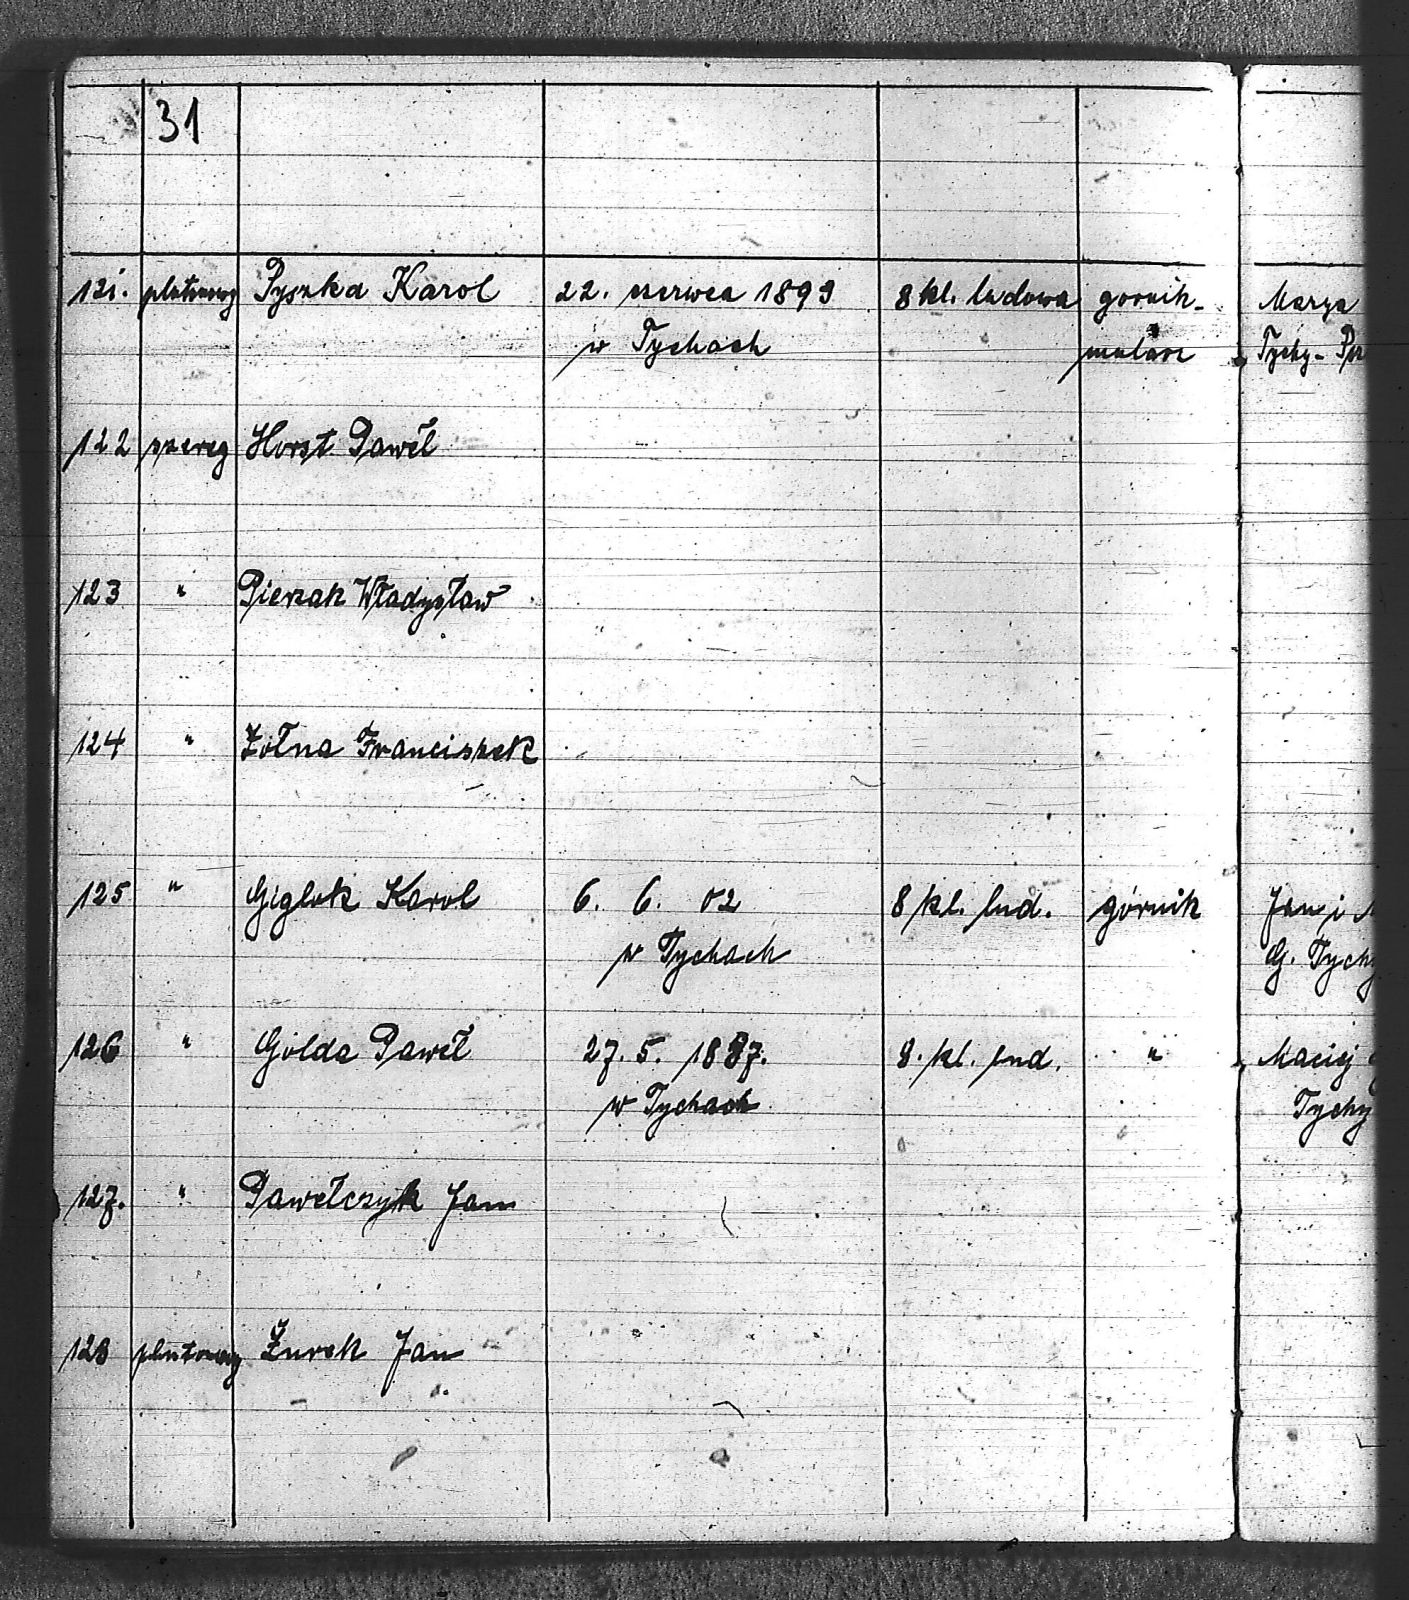 31
121. plutonowy Pyszka Karol 22. czerwca 1899 8 kl. ludowa gornik- Marya
w Tychach mularz Tychy-
122 szereg Horst Paweł
123 " Pierzak Władysław
124 " Żołna Franciszek
125 " Giglok Karol 6. 6. 02 8 kl. lud. górnik Jan i
w Tychach G. Tychy
126 " Golda Paweł 27. 5. 1887. 8. kl. lud. " Maciej
w Tychach Tychy
127. " Pawełczyk Jan
128 plutonowy Żurek Jan